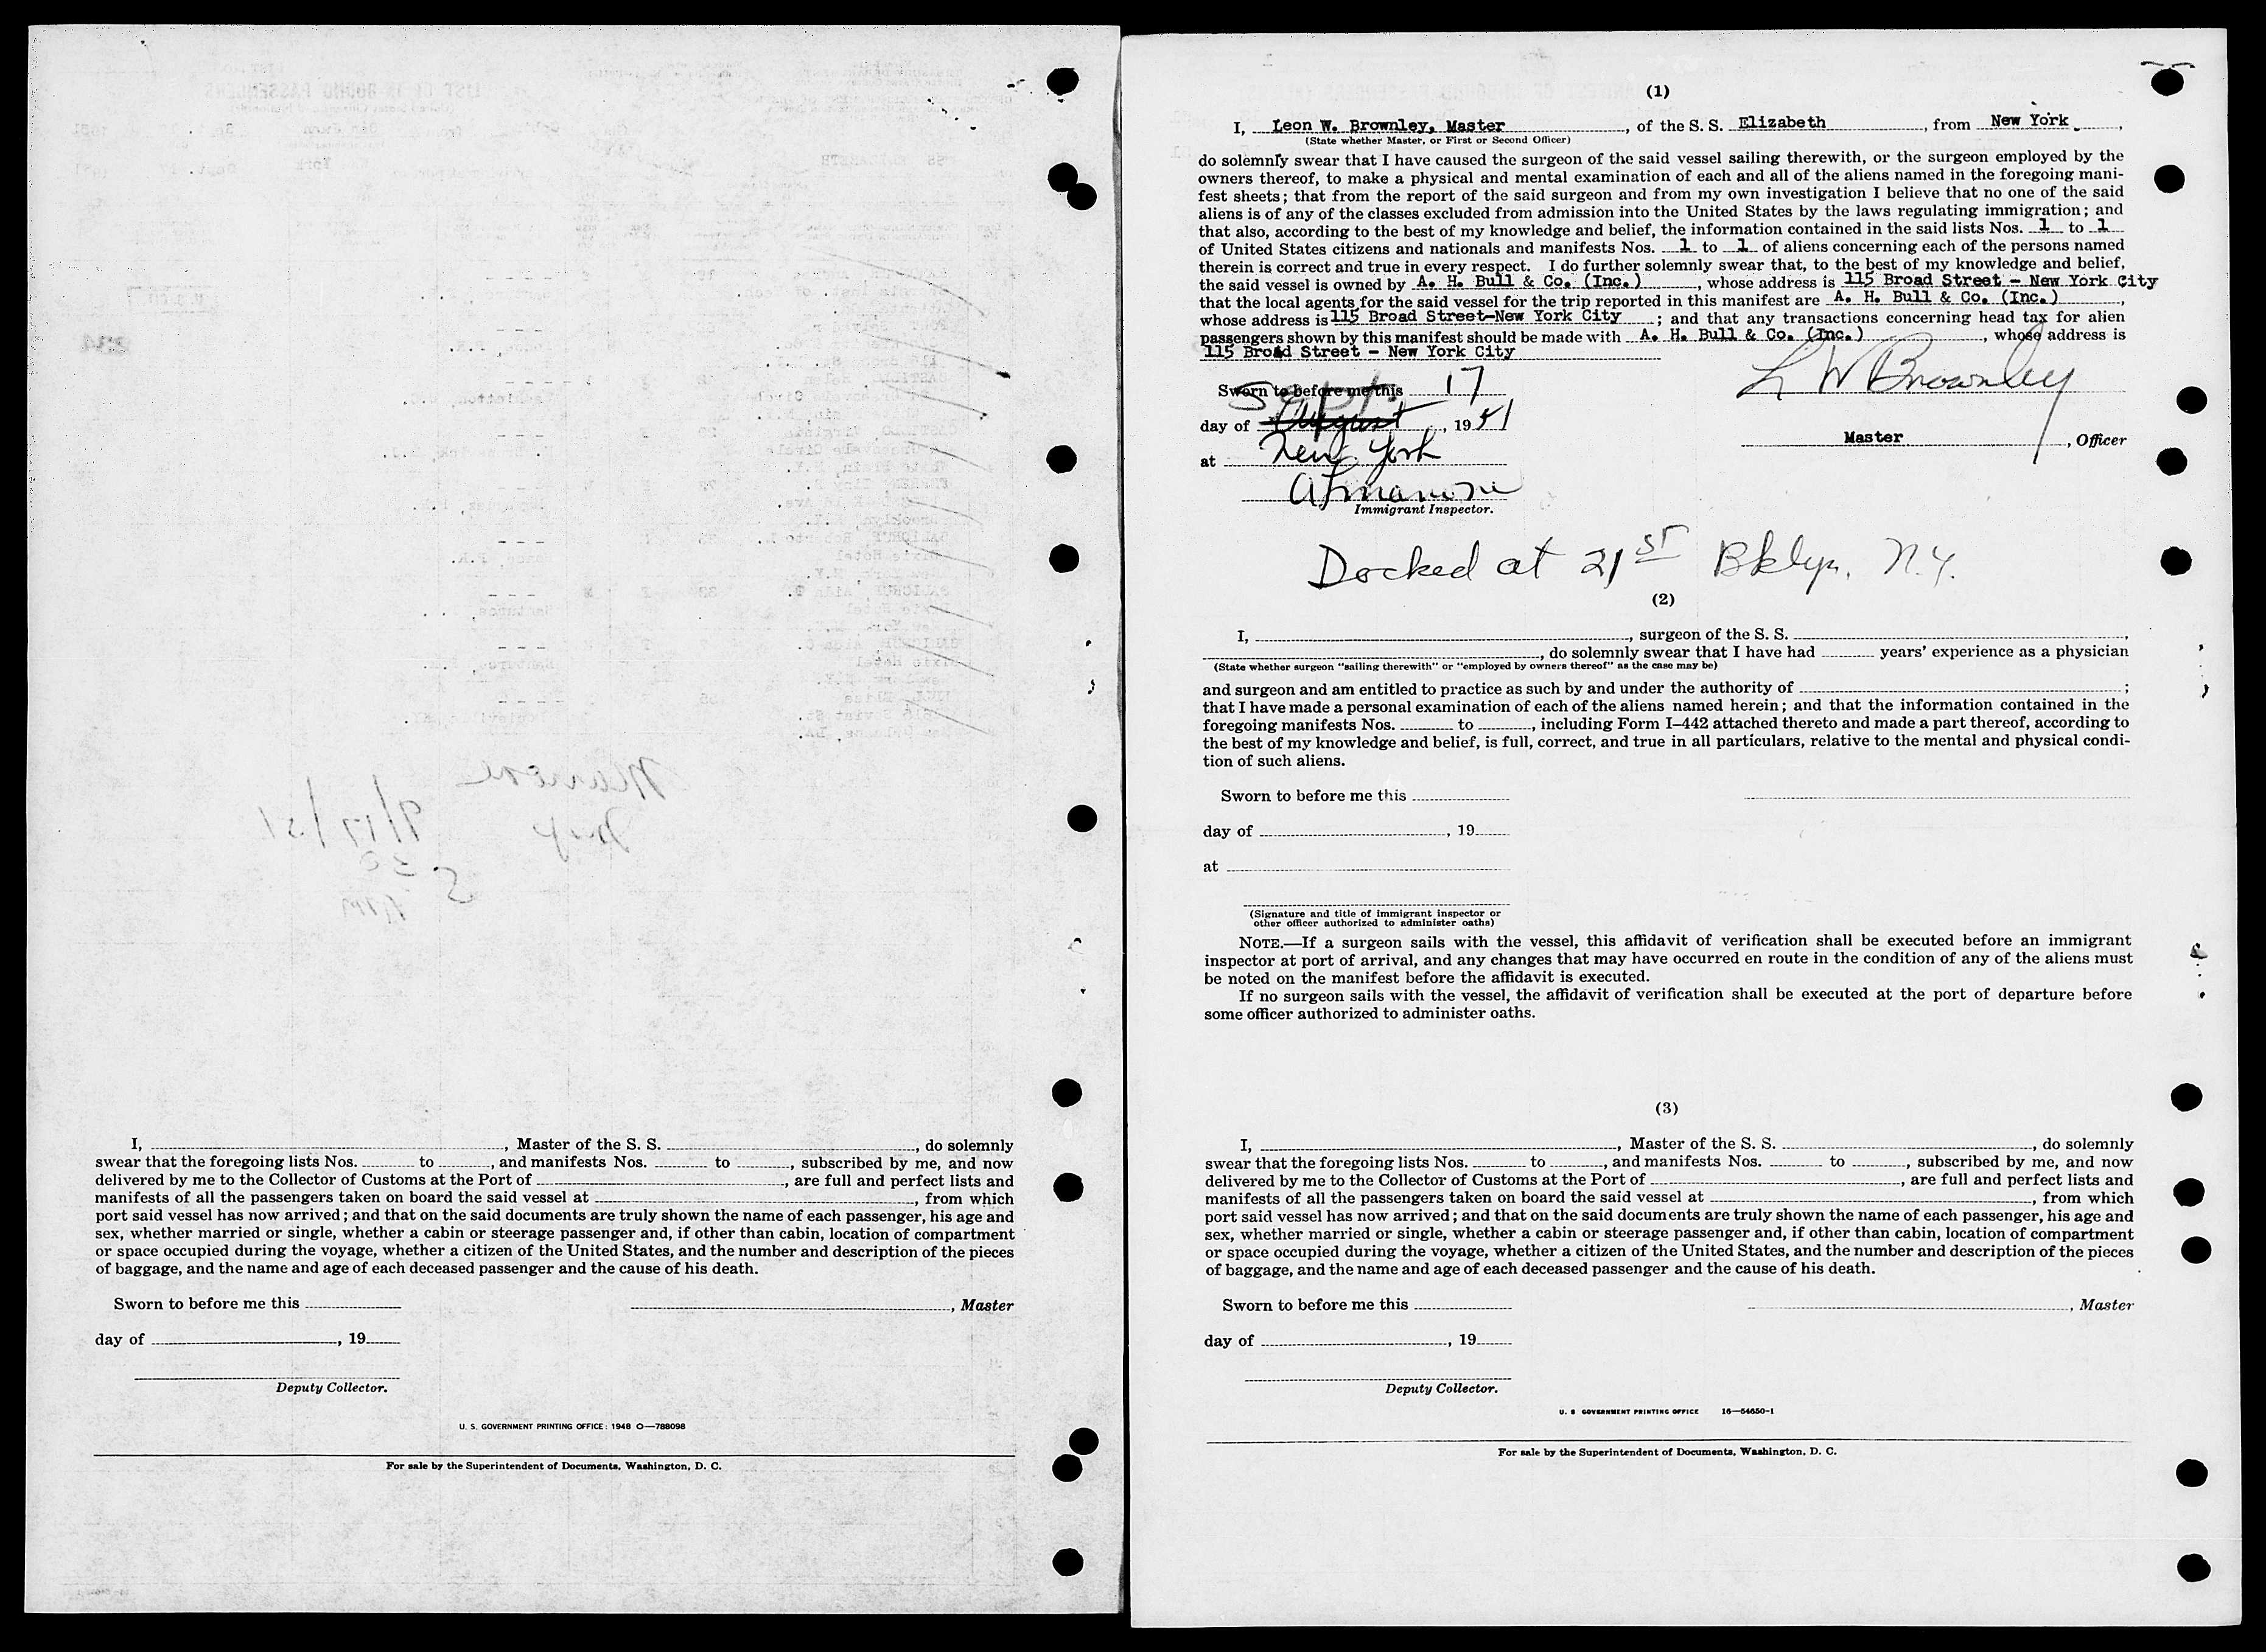 I, ........, Master of the S. S. ........, do solemnly
swear that the foregoing lists Nos. ........ to ........, and manifests Nos. ........ to ........, subscribed by me, and now
delivered by me to the Collector of Customs at the Port of ........, are full and perfect lists and
manifests of all the passengers taken on board the said vessel at ........, from which
port said vessel has now arrived; and that on the said documents are truly shown the name of each passenger, his age and
sex, whether married or single, whether a cabin or steerage passenger and, if other than cabin, location of compartment
or space occupied during the voyage, whether a citizen of the United States, and the number and description of the pieces
of baggage, and the name and age of each deceased passenger and the cause of his death.
Sworn to before me this ........ ........, Master
day of ........, 19....
Deputy Collector.
U. S. GOVERNMENT PRINTING OFFICE: 1948 O—788098
For sale by the Superintendent of Documents, Washington, D. C.
(1)
I, Leon W. Brownley, Master, of the S. S. Elizabeth, from New York,
(State whether Master, or First or Second Officer)
do solemnly swear that I have caused the surgeon of the said vessel sailing therewith, or the surgeon employed by the
owners thereof, to make a physical and mental examination of each and all of the aliens named in the foregoing mani-
fest sheets; that from the report of the said surgeon and from my own investigation I believe that no one of the said
aliens is of any of the classes excluded from admission into the United States by the laws regulating immigration; and
that also, according to the best of my knowledge and belief, the information contained in the said lists Nos. 1 to 1
of United States citizens and nationals and manifests Nos. 1 to 1 of aliens concerning each of the persons named
therein is correct and true in every respect. I do further solemnly swear that, to the best of my knowledge and belief,
the said vessel is owned by A. H. Bull & Co. (Inc.), whose address is 115 Broad Street - New York City
that the local agents for the said vessel for the trip reported in this manifest are A. H. Bull & Co. (Inc.),
whose address is 115 Broad Street-New York City; and that any transactions concerning head tax for alien
passengers shown by this manifest should be made with A. H. Bull & Co. (Inc.), whose address is
115 Broad Street - New York City
Sworn to before me this 17 L W Brownley
Sept.
day of August, 1951
Master, Officer
at New York
Immigrant Inspector.
Docked at 21st Bklyn. N.Y.
(2)
I, ........, surgeon of the S. S. ........,
........, do solemnly swear that I have had ........ years' experience as a physician
(State whether surgeon "sailing therewith" or "employed by owners thereof" as the case may be)
and surgeon and am entitled to practice as such by and under the authority of ........;
that I have made a personal examination of each of the aliens named herein; and that the information contained in the
foregoing manifests Nos. ........ to ........, including Form I-442 attached thereto and made a part thereof, according to
the best of my knowledge and belief, is full, correct, and true in all particulars, relative to the mental and physical condi-
tion of such aliens.
Sworn to before me this ........
day of ........, 19....
at ........
(Signature and title of immigrant inspector or
other officer authorized to administer oaths)
NOTE.—If a surgeon sails with the vessel, this affidavit of verification shall be executed before an immigrant
inspector at port of arrival, and any changes that may have occurred en route in the condition of any of the aliens must
be noted on the manifest before the affidavit is executed.
If no surgeon sails with the vessel, the affidavit of verification shall be executed at the port of departure before
some officer authorized to administer oaths.
(3)
I, ........, Master of the S. S. ........, do solemnly
swear that the foregoing lists Nos. ........ to ........, and manifests Nos. ........ to ........, subscribed by me, and now
delivered by me to the Collector of Customs at the Port of ........, are full and perfect lists and
manifests of all the passengers taken on board the said vessel at ........, from which
port said vessel has now arrived; and that on the said documents are truly shown the name of each passenger, his age and
sex, whether married or single, whether a cabin or steerage passenger and, if other than cabin, location of compartment
or space occupied during the voyage, whether a citizen of the United States, and the number and description of the pieces
of baggage, and the name and age of each deceased passenger and the cause of his death.
Sworn to before me this ........ ........, Master
day of ........, 19....
Deputy Collector.
U. S GOVERNMENT PRINTING OFFICE 16—54650-1
For sale by the Superintendent of Documents, Washington, D. C.